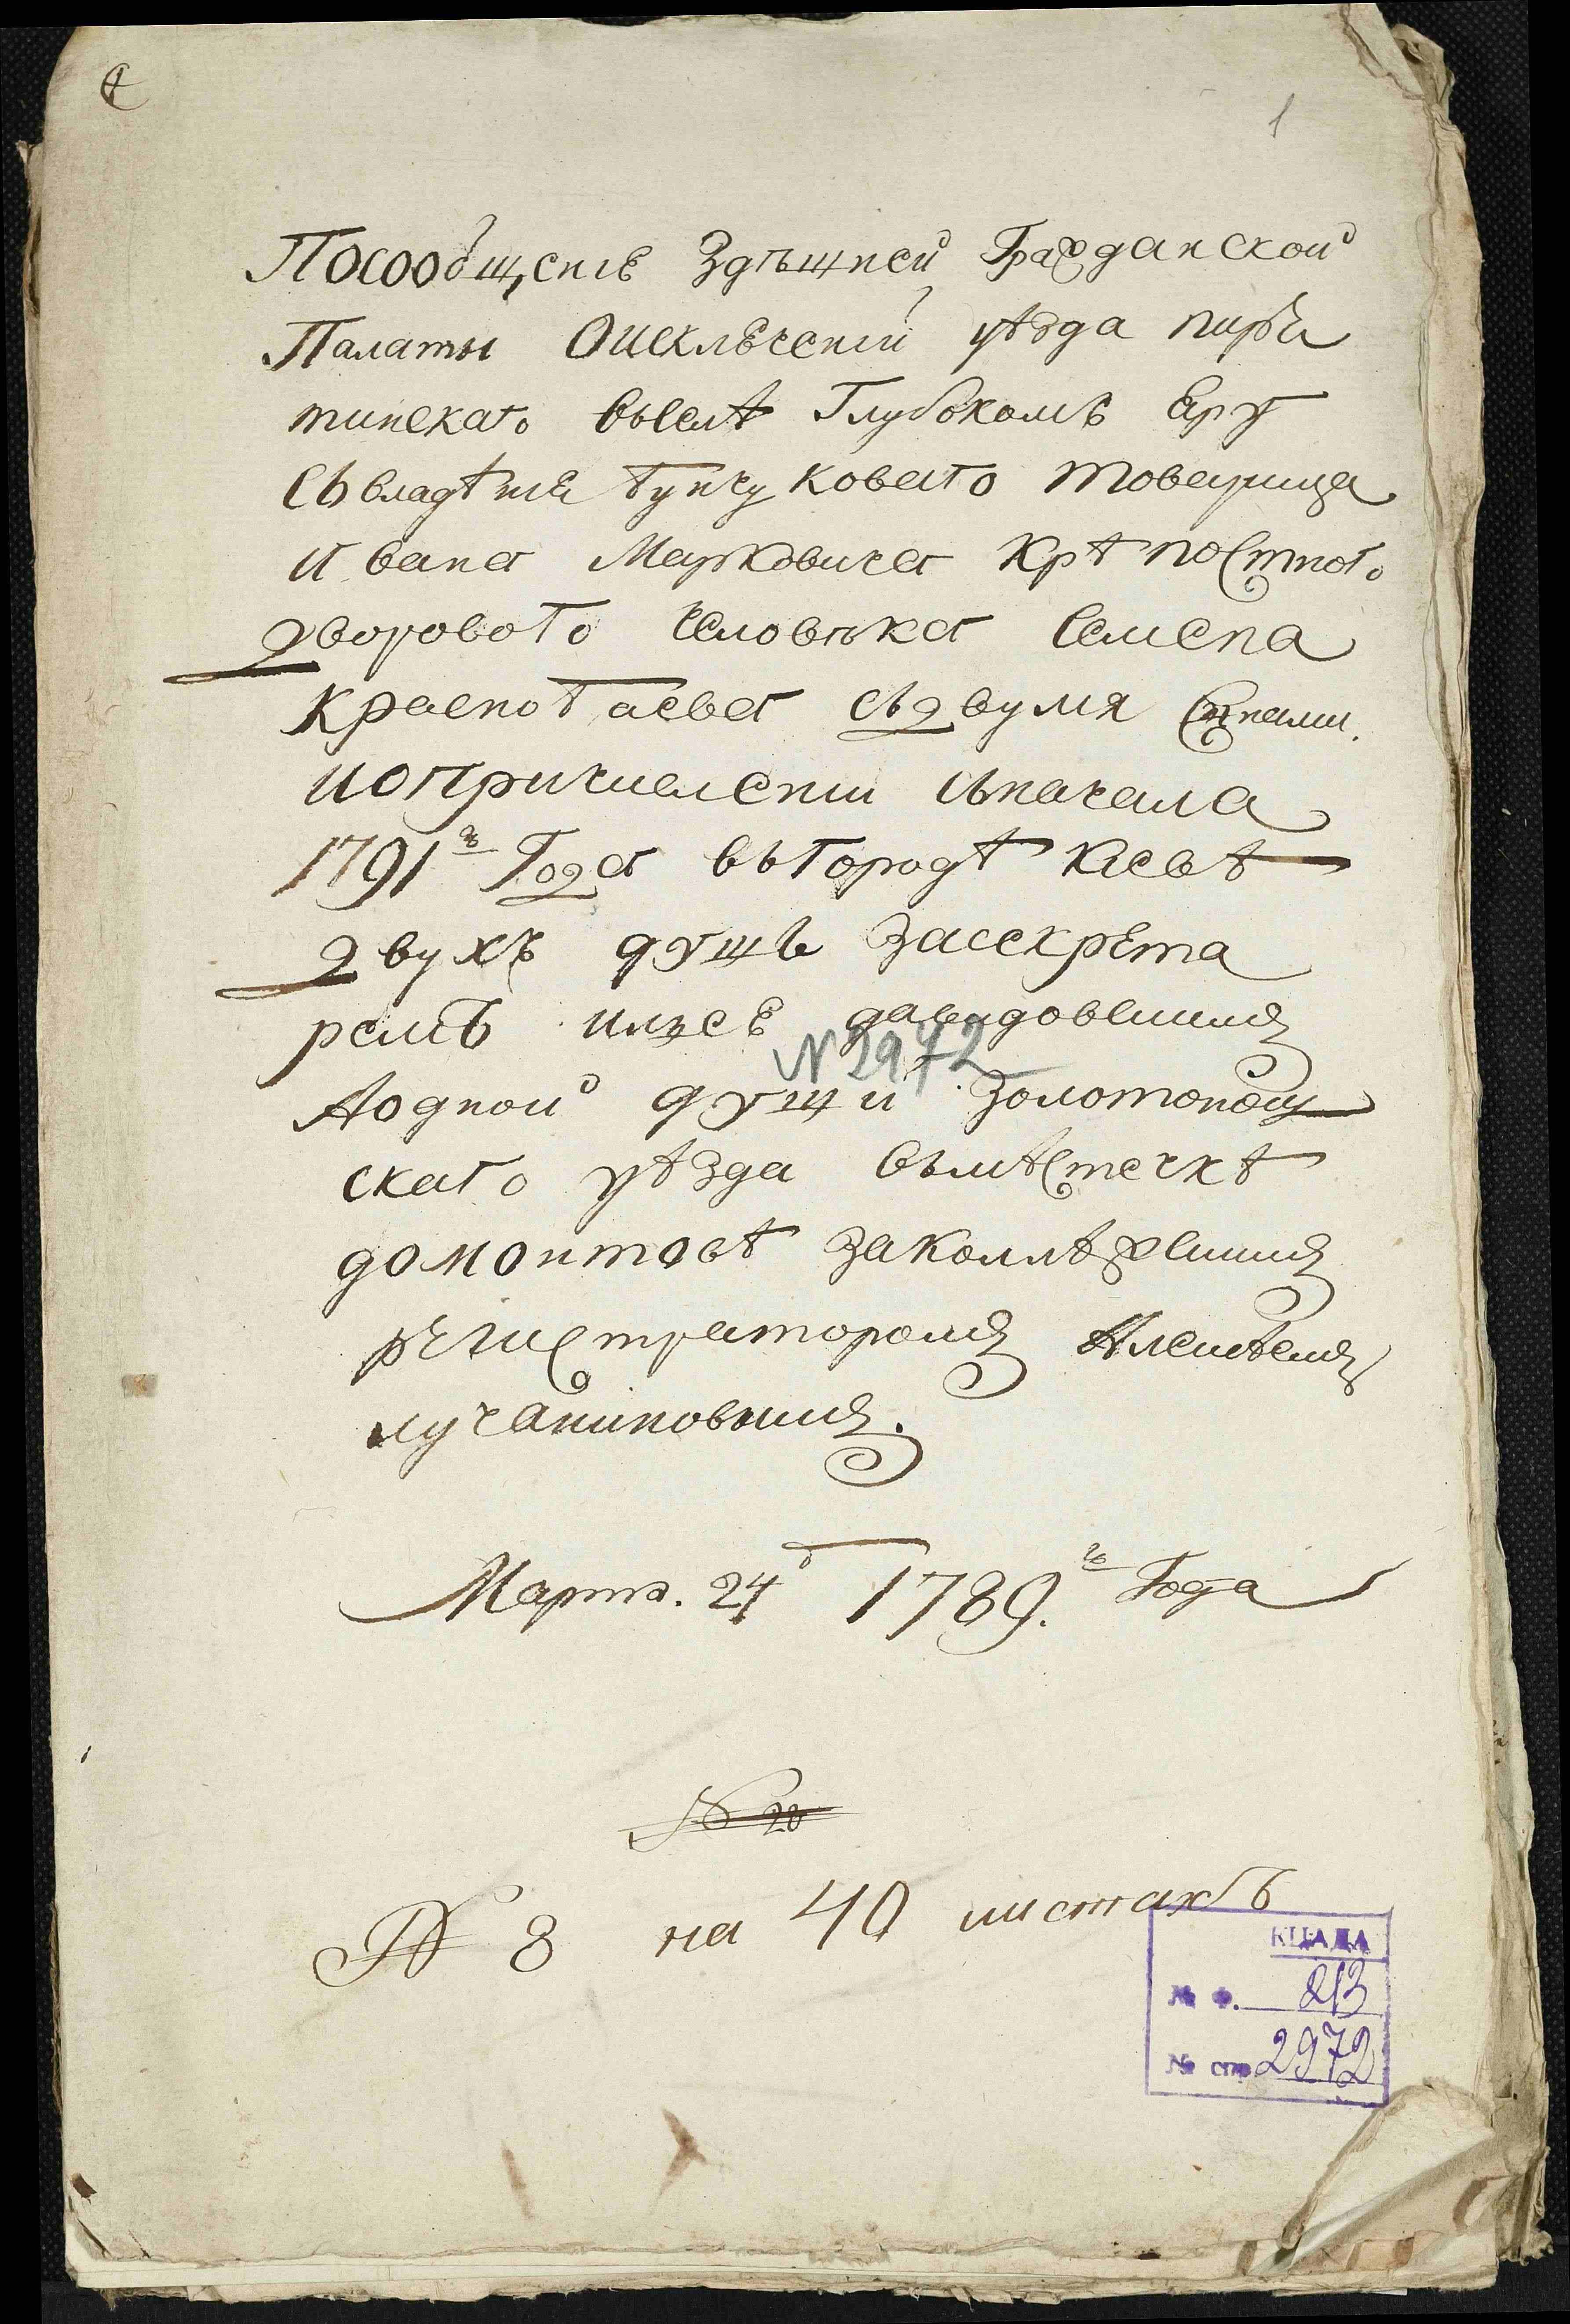 1
Посообщение Здѣшней Гражданской
Палаты Оисключении уѣзда пиря
тинскаго въселѣ Глубокомъ Яру
съвладѣния бунчуковаго товарища
Ивана Марковича крѣпостного
дворового человѣка Семена
Красногаева съдвумя сынами
иопричислении сначала
1791г Года въгородѣ Киевѣ
двухъ душъ засекрета
ремъ давидовимъ
N 2972
Аодной души Золотонош
скаго уѣзда вмѣстечкѣ
домонтовѣ заколлѣжскимъ
регистраторомъ Алексѣемъ
лучаниновымъ.
Марта. 24 1789.г Года
№ 20
№ 8 на 40 листахъ
КЦАДА
№ Ф. 213
№ спр 2972